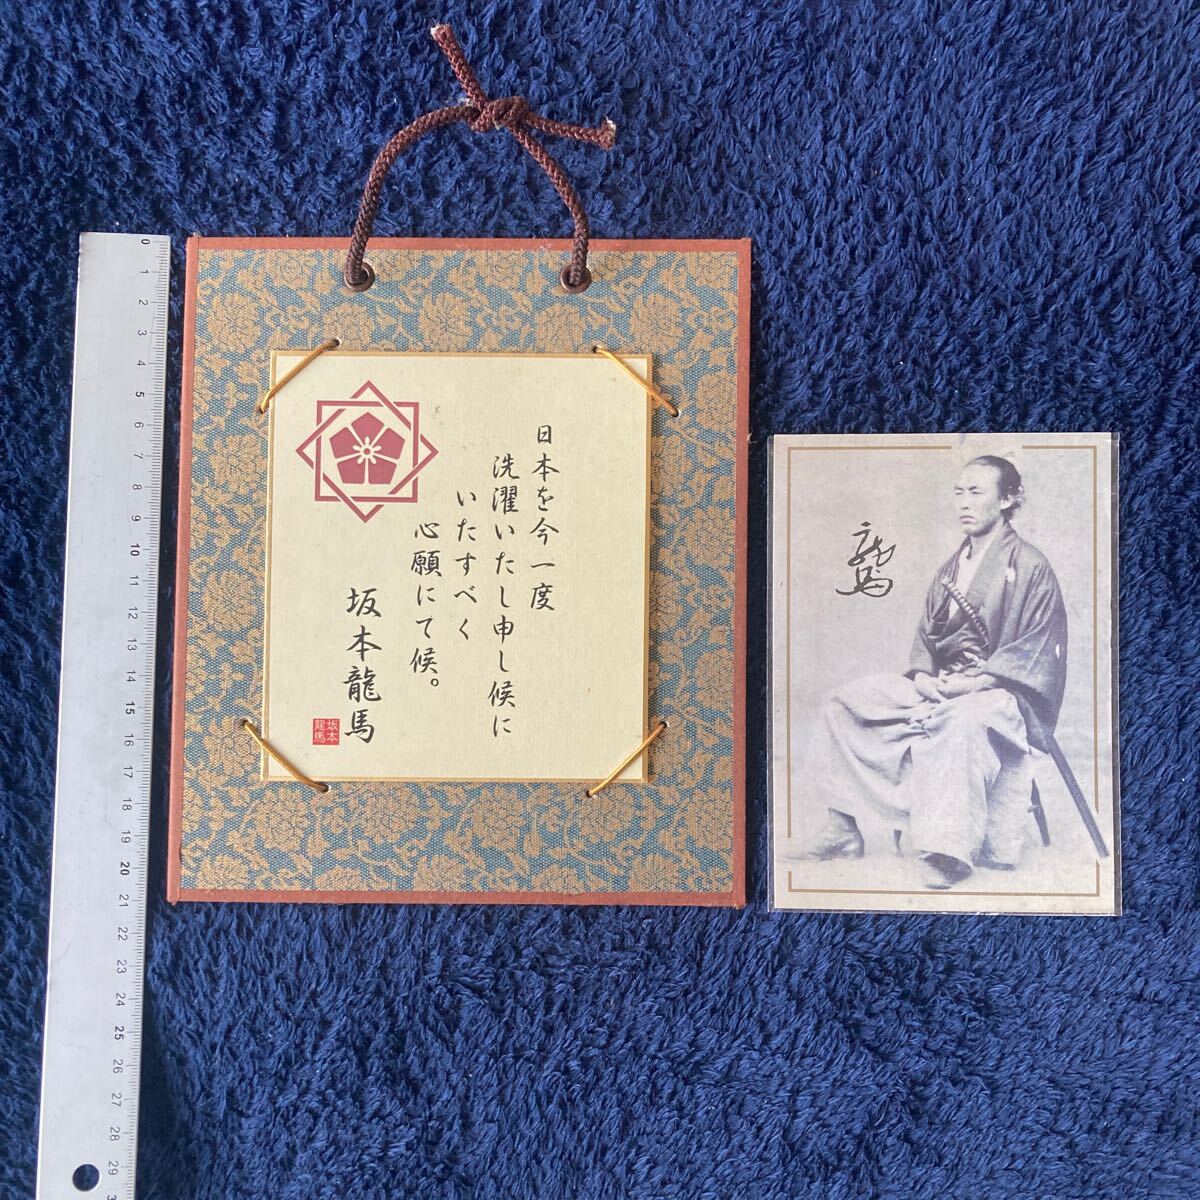 日本を今一度
洗濯いたし申し候に
いたすべく
心願にて候。
坂本龍馬
坂本
龍馬
龍馬
0
1
2
3
4
5
6
7
8
9
10
11
12
13
14
15
16
17
18
19
20
21
22
23
24
25
26
27
28
29